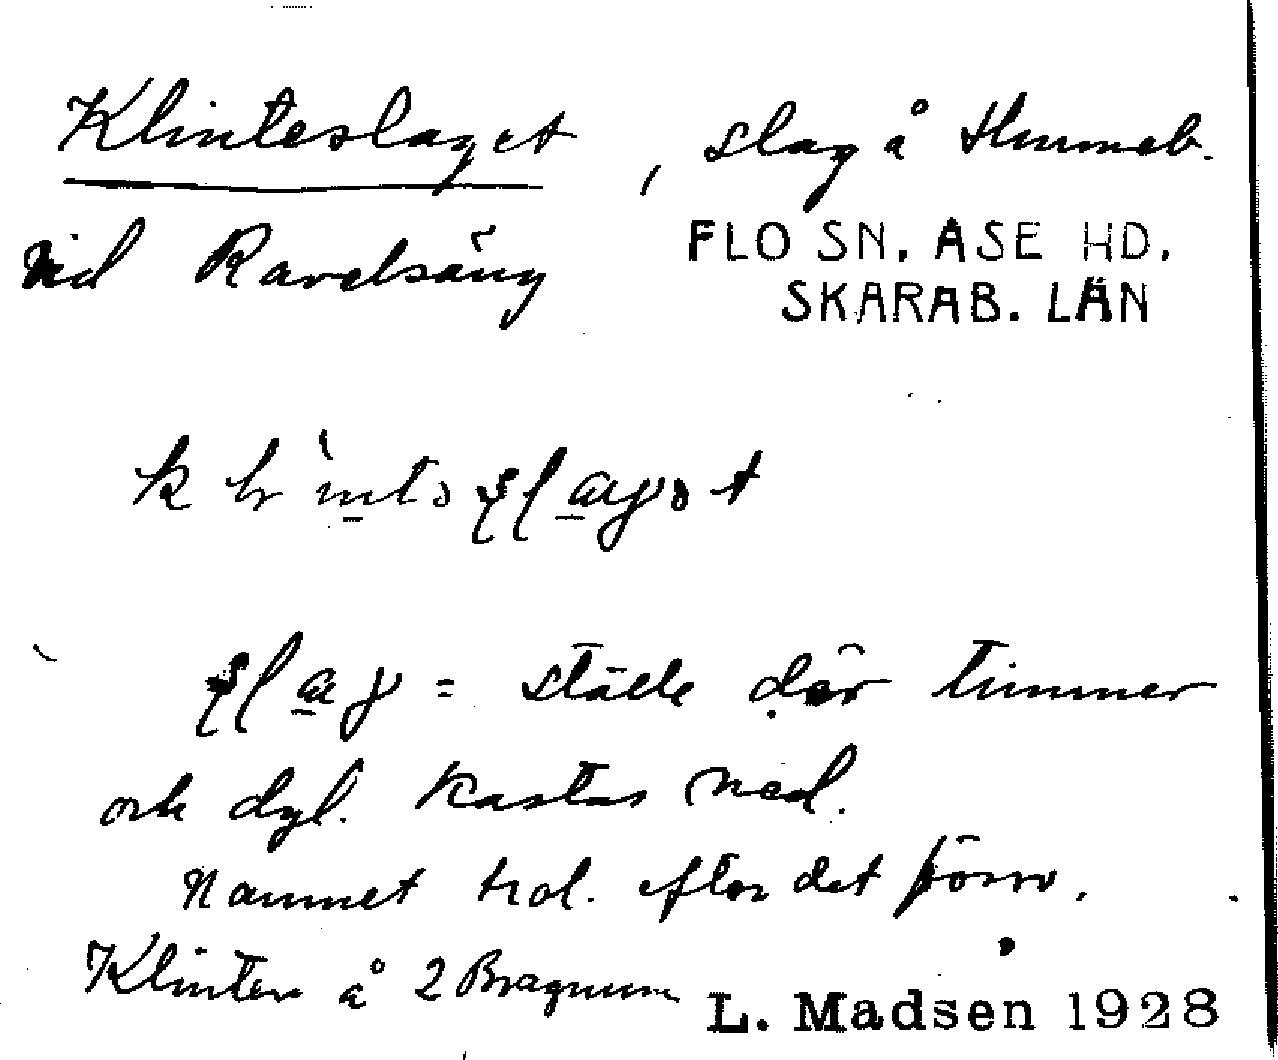 Klinteslaget, slag å Hunneb.
vid Ravelsäng FLO SN. ÅSE HD.
SKARAB. LÄN
= ställe där timmer
och dyl. kastas ned.
Namnet trol. efter det försv.
Klinten å 2 Bragnum
L. Madsen 1928